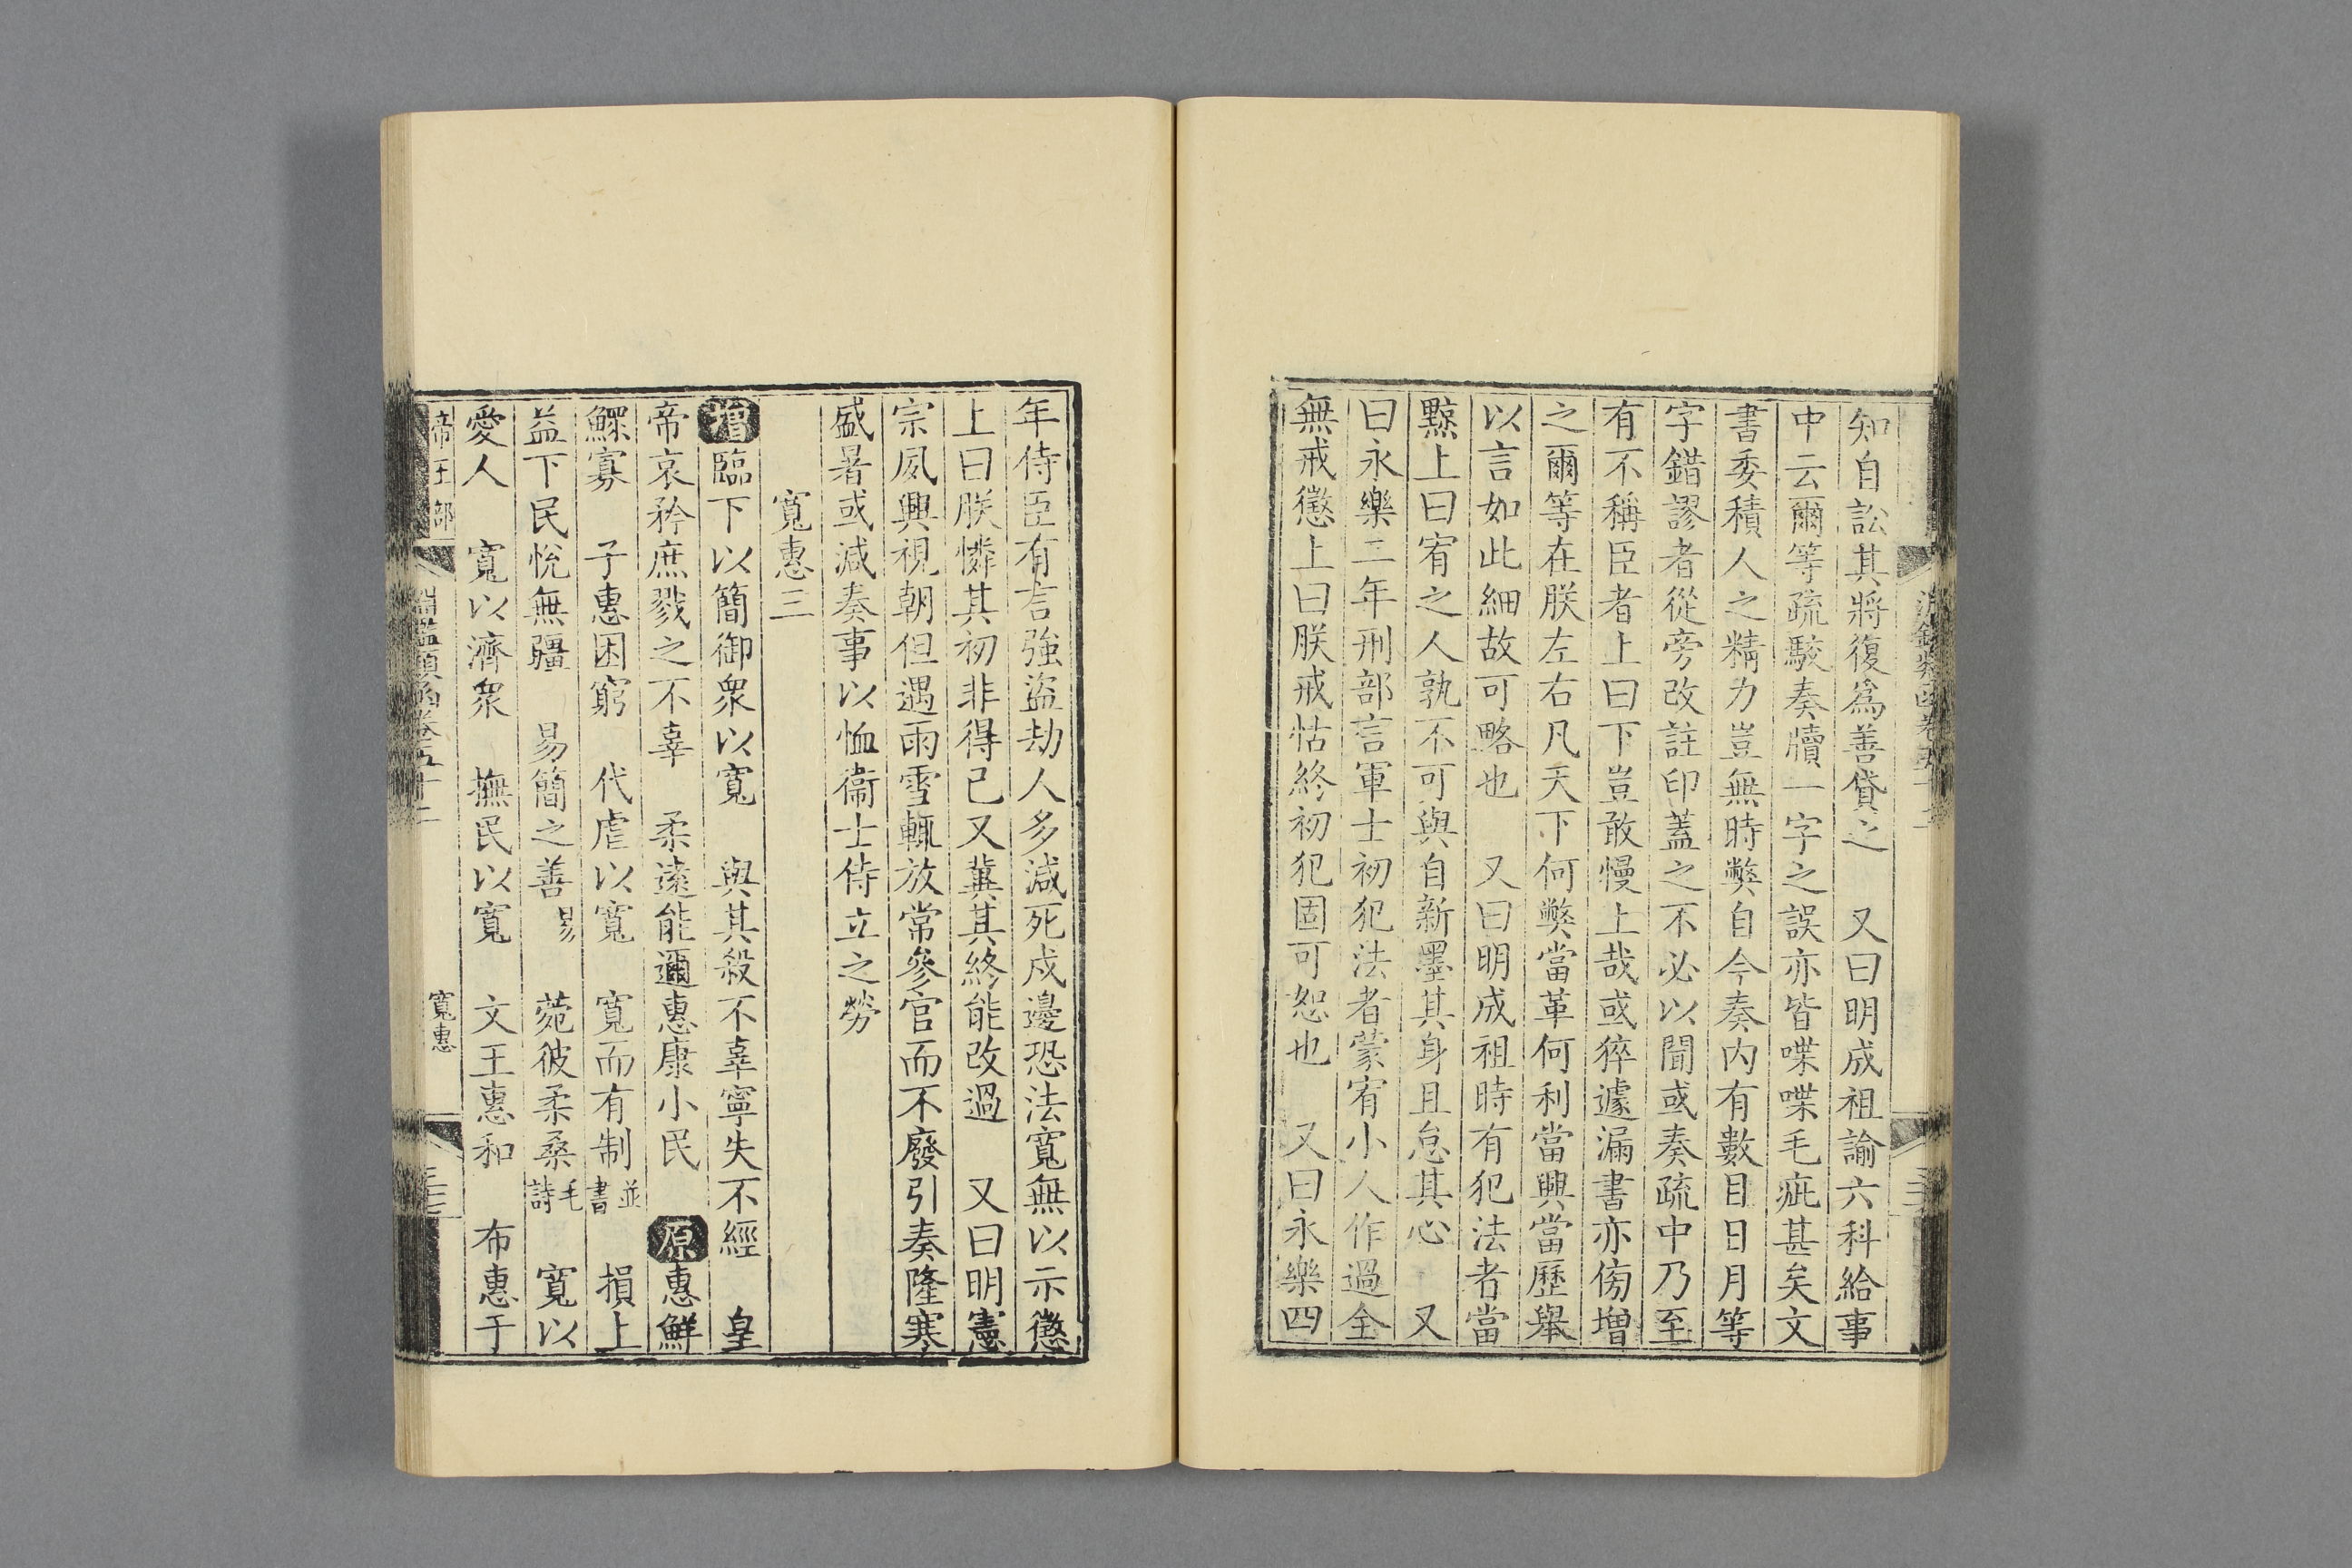 知自訟其將復爲善貸之　又曰明成祖諭六科給事
中云爾等疏駁奏牘一字之誤亦皆喋喋毛疵甚矣文
書委積人之精力豈無時弊自今奏內有數目日月等
字錯謬者從旁改註印蓋之不必以聞或奏疏中乃至
有不稱臣者上曰下豈敢慢上哉或猝遽漏書亦傍增
之爾等在朕左右凡天下何弊當革何利當興當歷舉
以言如此細故可略也　又曰明成祖時有犯法者當
黥上曰宥之人孰不可與自新墨其身且怠其心　又
曰永樂二年刑部言軍士初犯法者蒙宥小人作過全
無戒懲上曰朕戒怙終初犯固可恕也　又曰永樂四
年侍臣有言強盜劫人多減死戍邊恐法寬無以示懲
上曰朕憐其初非得已又冀其終能改過　又曰明憲
宗夙興視朝但遇雨雪輒放常參官而不廢引奏隆寒
盛暑或減奏事以恤衞士侍立之勞
寬惠三
增臨下以簡御衆以寬　與其殺不辜寧失不經　皇
帝哀矜庶戮之不辜　柔遠能邇惠康小民　原惠鮮
鰥寡　子惠困窮　代虐以寬　寬而有制並書　損上
益下民悅無疆　易簡之善易　菀彼柔桑毛詩　寬以
愛人　寬以濟衆　撫民以寬　文王惠和　布惠于
帝王部　淵鑑類函卷五十二　寬惠